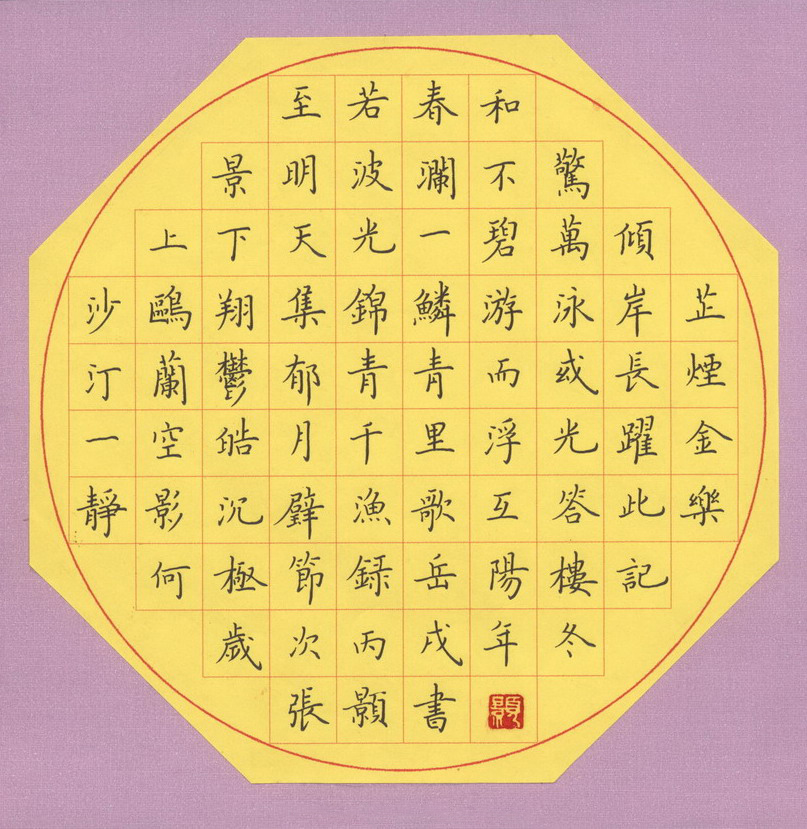 至若春和
景明波瀾不驚
上下天光一碧萬傾
沙鷗翔集錦鱗游泳岸芷
汀蘭鬱郁青青而或長煙
一空皓月千里浮光躍金
靜影沉璧漁歌互答此樂
何極節録岳陽樓記
歲次丙戌年冬
張顥書
顥